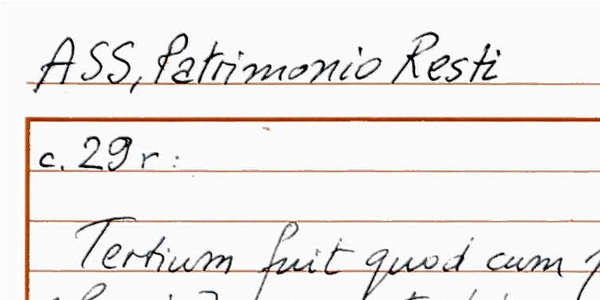 ASS, Patrimonio Resti
c. 29 r:
Tertium fuit quod cum